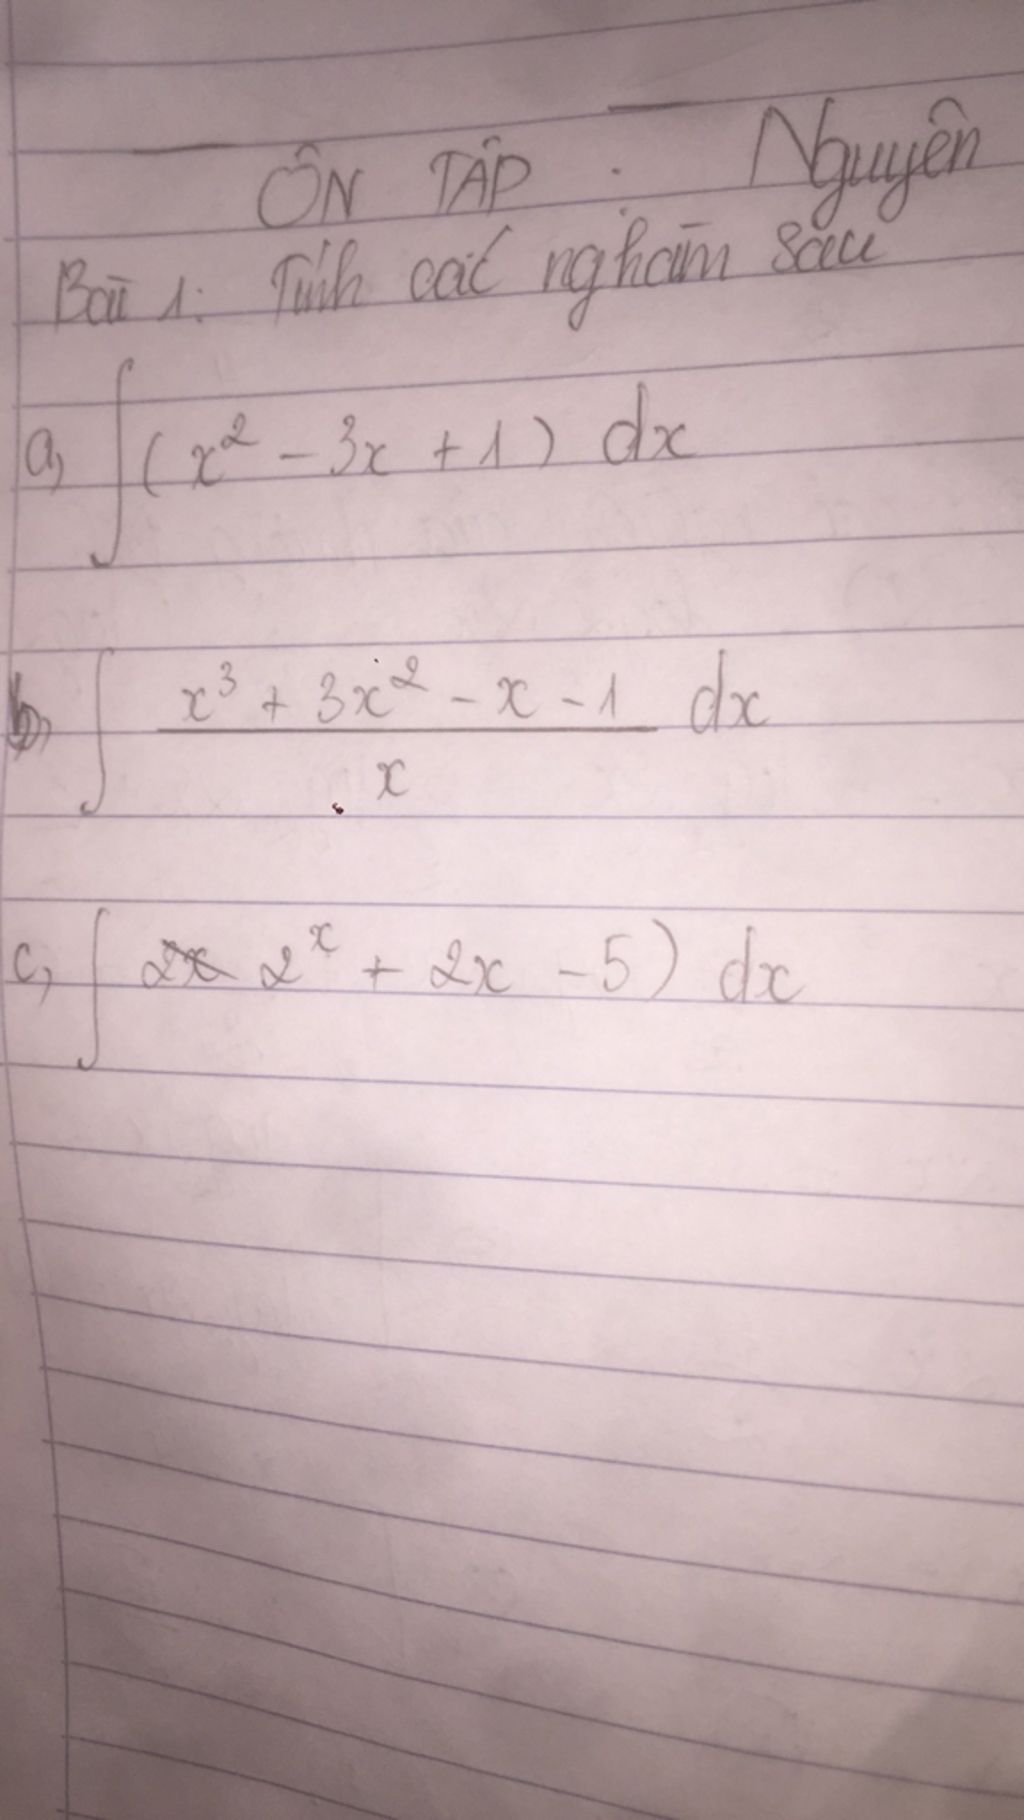 ÔN TẬP . Nguyên
Bài 1: Tính các nghàm sau
a, ∫(x² - 3x + 1) dx
b, ∫ x³ + 3x² - x - 1 dx
x
c, ∫ 2x 2ˣ + 2x - 5) dx